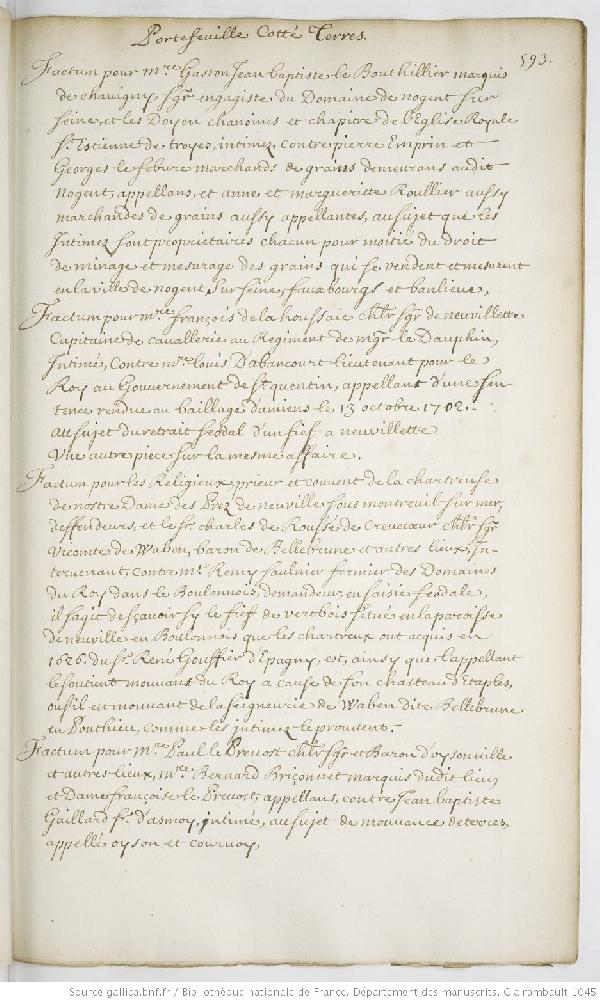 Portefeuille Cotté Terres.
593.
Factum pour mre. Gaston Jean baptiste le Bouthillier marquis
de chavigny sgr. engagiste du Domaine de nogent sur
seine, et les Doyen chanoines et chapitre de l'Eglise Royale
st. Estienne de troyes, intimez, contre pierre Emprin et
Georges le febure marchands de grains demeurans audit
nogent, appellans, et anne et margueritte Roullier aussy
marchandes de grains aussy appellantes, au sujet que les
Intimez sont proprietaires chacun pour moitié du droit
de minage et mesurage des grains qui se vendent et mesurent
en la ville de nogent sur seine, fauxbourgs et banlieue,
Factum pour mre. françois de la houssaie chlr. sgr. de neuvillette
Capitaine de cavallerie au Regiment de mgr. le Dauphin,
Intimé, Contre mre. louis D'abancourt lieutenant pour le
Roy au Gouvernement de st. quentin, appellant d'une sen-
tence rendue au bailliage d'amiens le 13 octobre 1702.
au sujet du retrait feodal d'un fief a neuvillette
Une autre piece sur la mesme affaire.
Factum pour les Religieux, prieur et couvent de la chartreuse
de nostre Dame des Prez de neuville sous montreuil sur mer,
deffendeurs, et le sr. charles de Rousse de Crevecœur chlr. sgr.
Vicomte de Waben, baron de Bellebrune et autres lieux, In-
tervenant, contre mr. Remy saulnier fermier des Domaines
du Roy dans le Boulonnois, demandeur en saisie feodale,
il s'agit de sçavoir sy le fief de vertbois situé en la paroisse
de neuville en Boulonnois que les chartreux ont acquis en
1626. du sr. René Gouffier d'Epagny, est, ainsy que l'appellant
le soutient mouvant du Roy a cause de son chasteau d'Etaples,
ou s'il est mouvant de la seigneurie de Waben dite Bellebrune
en Ponthieu, comme les intimez le prouvent.
Factum pour mre. Paul le Prevost chlr. sgr. et Baron d'oysonville
et autres lieux, mre. Bernard Briçonnet marquis dudit lieu,
et Dame françoise le Prevost, appellans, contre Jean baptiste
Gaillard sr. intimé, au sujet de mouvance de terres,
appellé oyson et
Source gallica.bnf.fr / Bibliothèque nationale de France. Département des manuscrits. Clairambault 1045